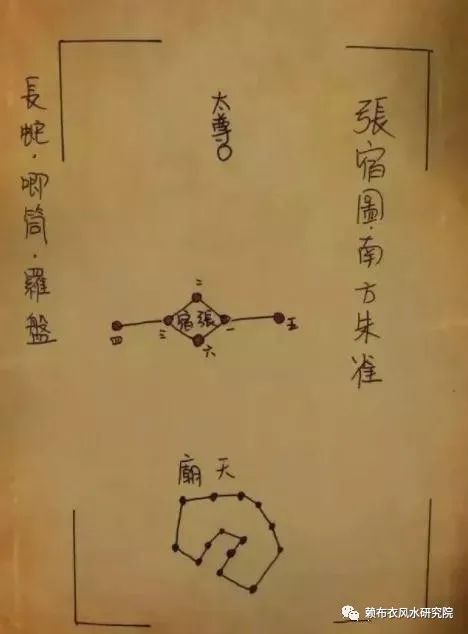 張宿圖·南方朱雀
長蛇·唧筒·羅盤
太尊
二
四 三 宿張 一 五
六
廟天
赖布衣风水研究院